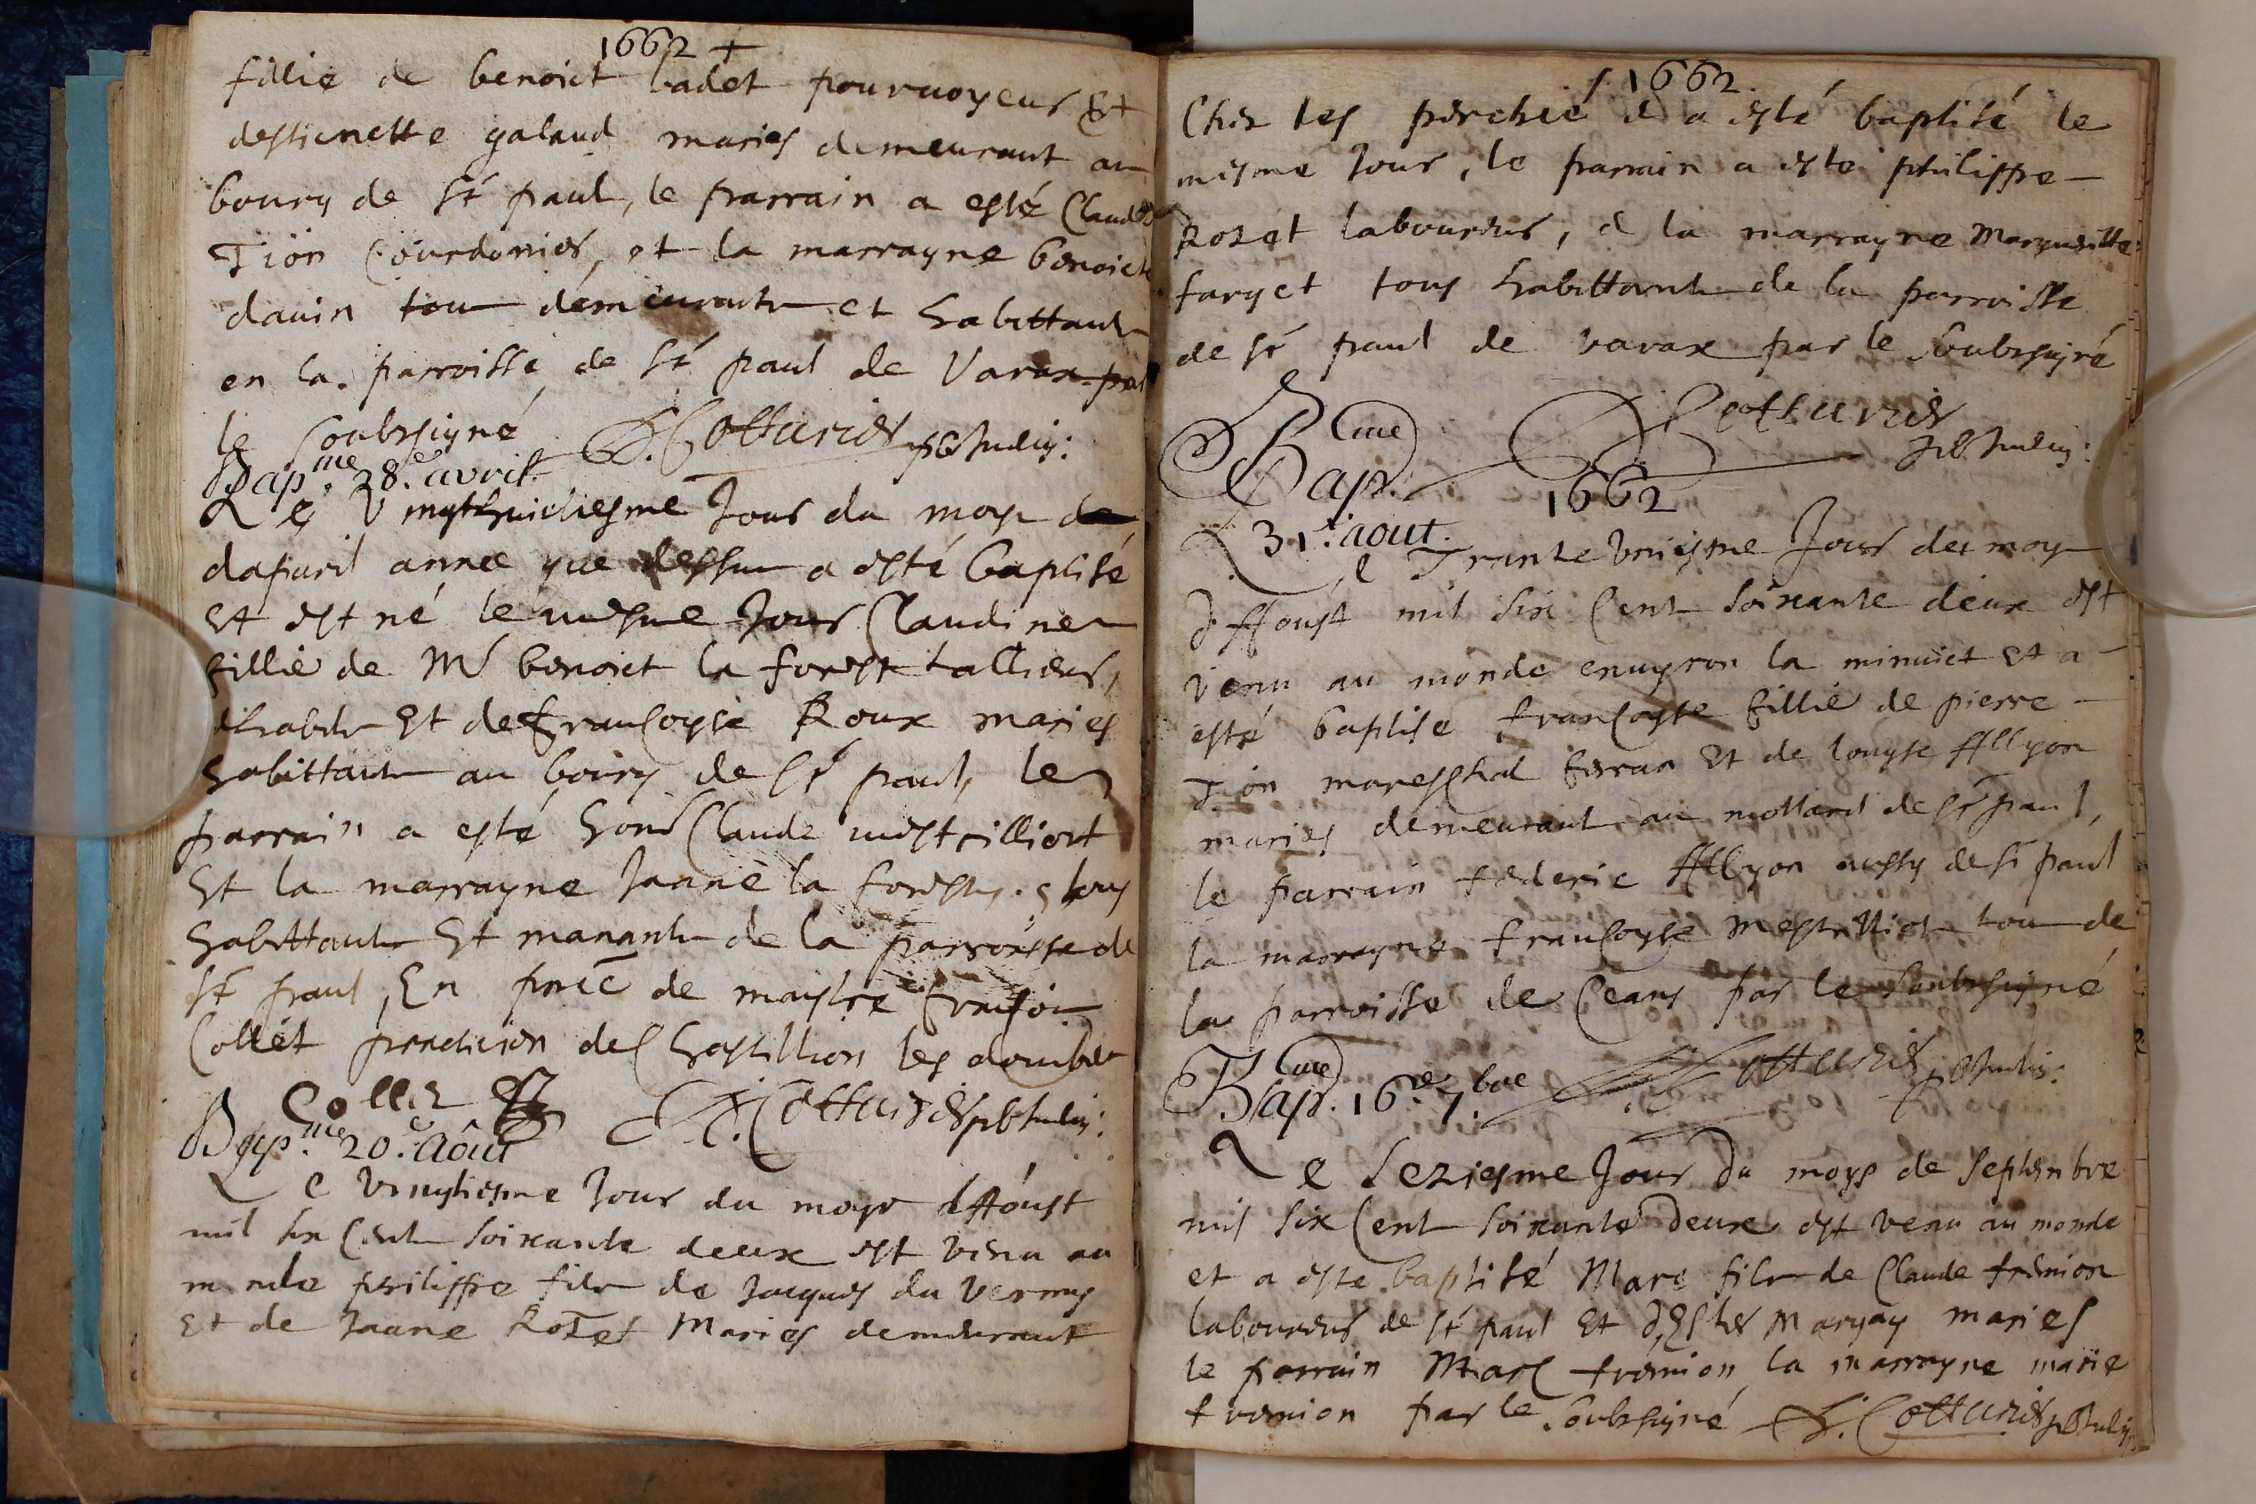 1662 +
fillie de benoict badet pourvoyeur Et
destienette galand maries demeurant au
bourg de St paul, le parrain a esté Claude
Tiön Courdonier, et la marrayne benoicte
dauin tou demeurantz et habittantz
en la parroisse de St paul de Varax par
le soubsigné Cottarier
Bapme 28e avril
Le vingthuictiesme Jour du moys de
dapuril annee que dessus a esté baptisé
Et est né le mesme Jour Claudine
fillie de Mr benoict la forest tallieur
Et de francoyse Roux maries
habittantz au bourg de St paul, le
parrain a esté hond Claude mestrilliort
Et la marrayne Janne la forest tous
habittantz Et manantz de la parroisse de
St paul, En pnce de maystre francois
Collet practicien de Chastillion les dombes
Collet Cottarier
Bapme 20e Août
Le vingtiesme Jour du moys dAoust
mil six Cent soixante deux est venu au
monde philippe filz de Jacques du Vernay
Et de Janne Rozet Maries demeurant
1662.
Chez les perchié et a esté baptisé le
mesme Jour, le parrain a esté philippe
Rozet laboureur, et la marrayne Margueritte
farget tous habittantz de la parroisse
de St paul de varax par le soubsigné
Cottarier
Curé
1662
Bap.
31e aout.
Le Trante vniesme Jour du moys
dAoust mil six Cent soixante deux est
venu au monde enuyron la minuict Et a
esté baptise francoyse fillie de pierre
Tion mareschal ferran Et de louyse Allyon
maries demeurant au mollard de St paul,
le parrain federic Allyon aussy de St paul
la marrayne francoyse mestrilliot tou de
la parroisse de Ceans par le soubsigné
Cottarier
Curé
Bap. 16e 7bre
Le seziesme Jour du moys de septenbre
mil six Cent soixante deux est venu au monde
et a este baptisé Marc filz de Claude fremion
laboureur de St paul Et dEster Margay maries
le parrain Marc fremion, la marrayne marie
fremion par le soubsigné Cottarier